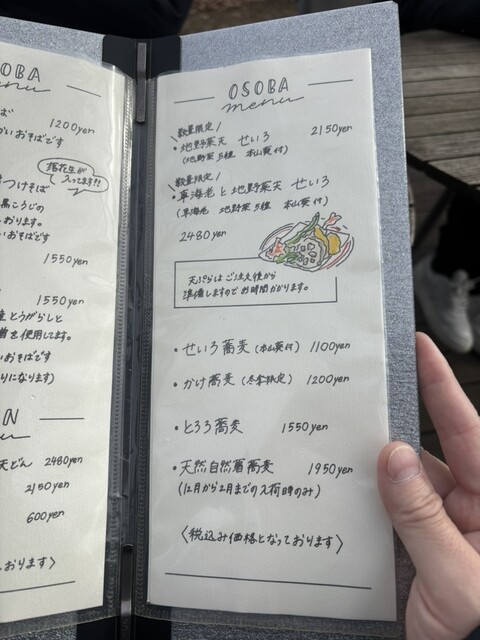 OSOBA
menu
1200yen
かいおそばです
落花生が
入ってます!!
つけそば
黒こうじの
おります。
いおそばです
1550yen
1550yen
とうがらしと
を使用してます。
いおそばです
りになります)
N
天どん 2480yen
2150yen
600yen
おります〉
OSOBA
menu
\数量限定/
・地野菜天 せいろ 2150yen
(地野菜5種 本山葵付)
\数量限定/
・車海老と地野菜天 せいろ
(車海老 地野菜5種 本山葵付)
2480yen
天ぷらはご注文後から
準備しますのでお時間かかります。
・せいろ蕎麦(本山葵付) 1100yen
・かけ蕎麦(冬季限定) 1200yen
・とろろ蕎麦 1550yen
・天然自然薯蕎麦 1950yen
(12月から2月までの入荷時のみ)
〈税込み価格となっております〉